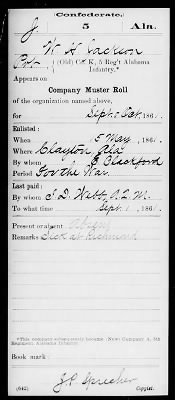 (Confederate.)
J. 5 Ala.
W. H. Jackson
Pvt., (Old) Co. K, 5 Reg't Alabama
Infantry.*
Appears on
Company Muster Roll
of the organization named above,
for Sept & Oct, 1861.
Enlisted:
When 5 May, 1861.
Where Clayton, Ala
By whom E. Blackford
Period For the War.
Last paid:
By whom J. D. Webb, A. Q. M.
To what time Sept. 1, 1861.
Present or absent Absent
Remarks Sick at Richmond
*This company subsequently became (New) Company A, 5th
Regiment Alabama Infantry.
Book mark:
(642) J. P. Sprecher
Copyist.